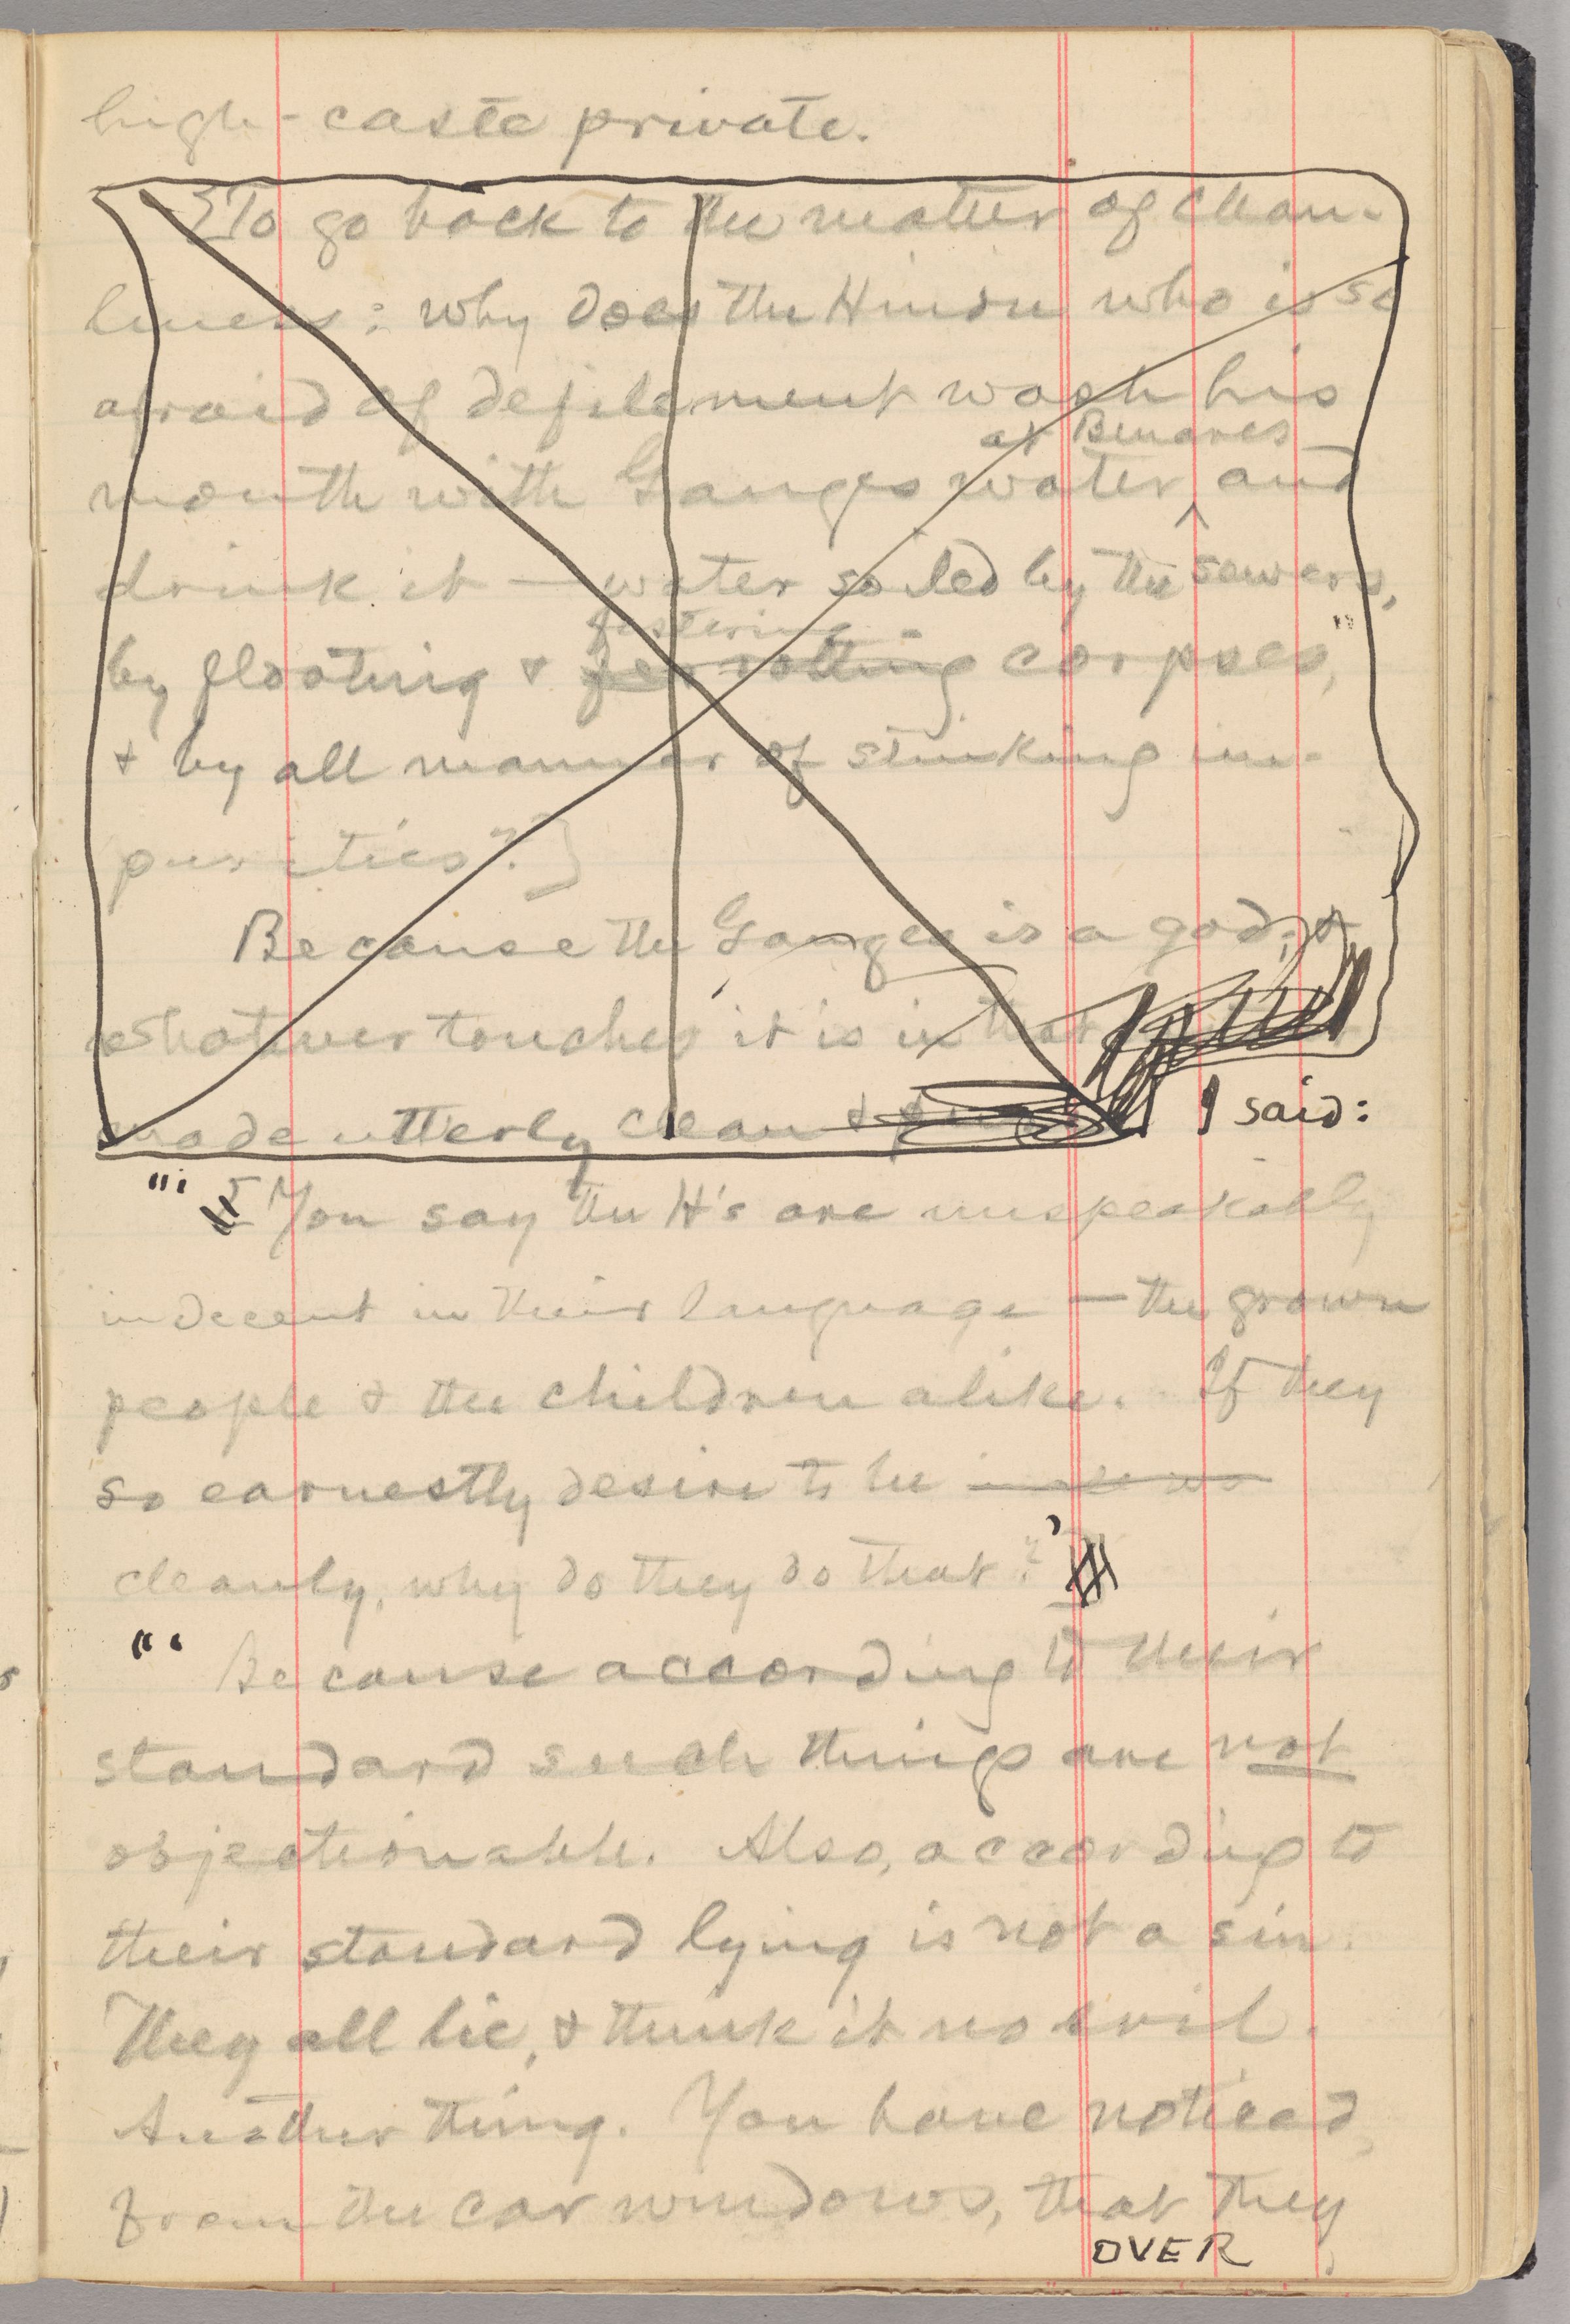 high-caste private.
[To go back to the matter of clean-
liness: why does the Hindu who is so
afraid of defilement wash his
at Benares
mouth with Ganges water, and
drink it — water soiled by the sewers,
festering
by floating & rotting corpses,
& by all manner of stinking im-
purities?]
Because the Ganges is a god; &
whatever touches it is in that
made utterly clean &
I said:
"' You say the H's are unspeakably
indecent in their language — the grown
people & the children alike. If they
so earnestly desire to be
cleanly, why do they do that?'
"' Because according to their
standard such things are not
objectionable. Also, according to
their standard lying is not a sin.
They all lie, & think it no evil.
Another thing. You have noticed,
from the car windows, that they
OVER